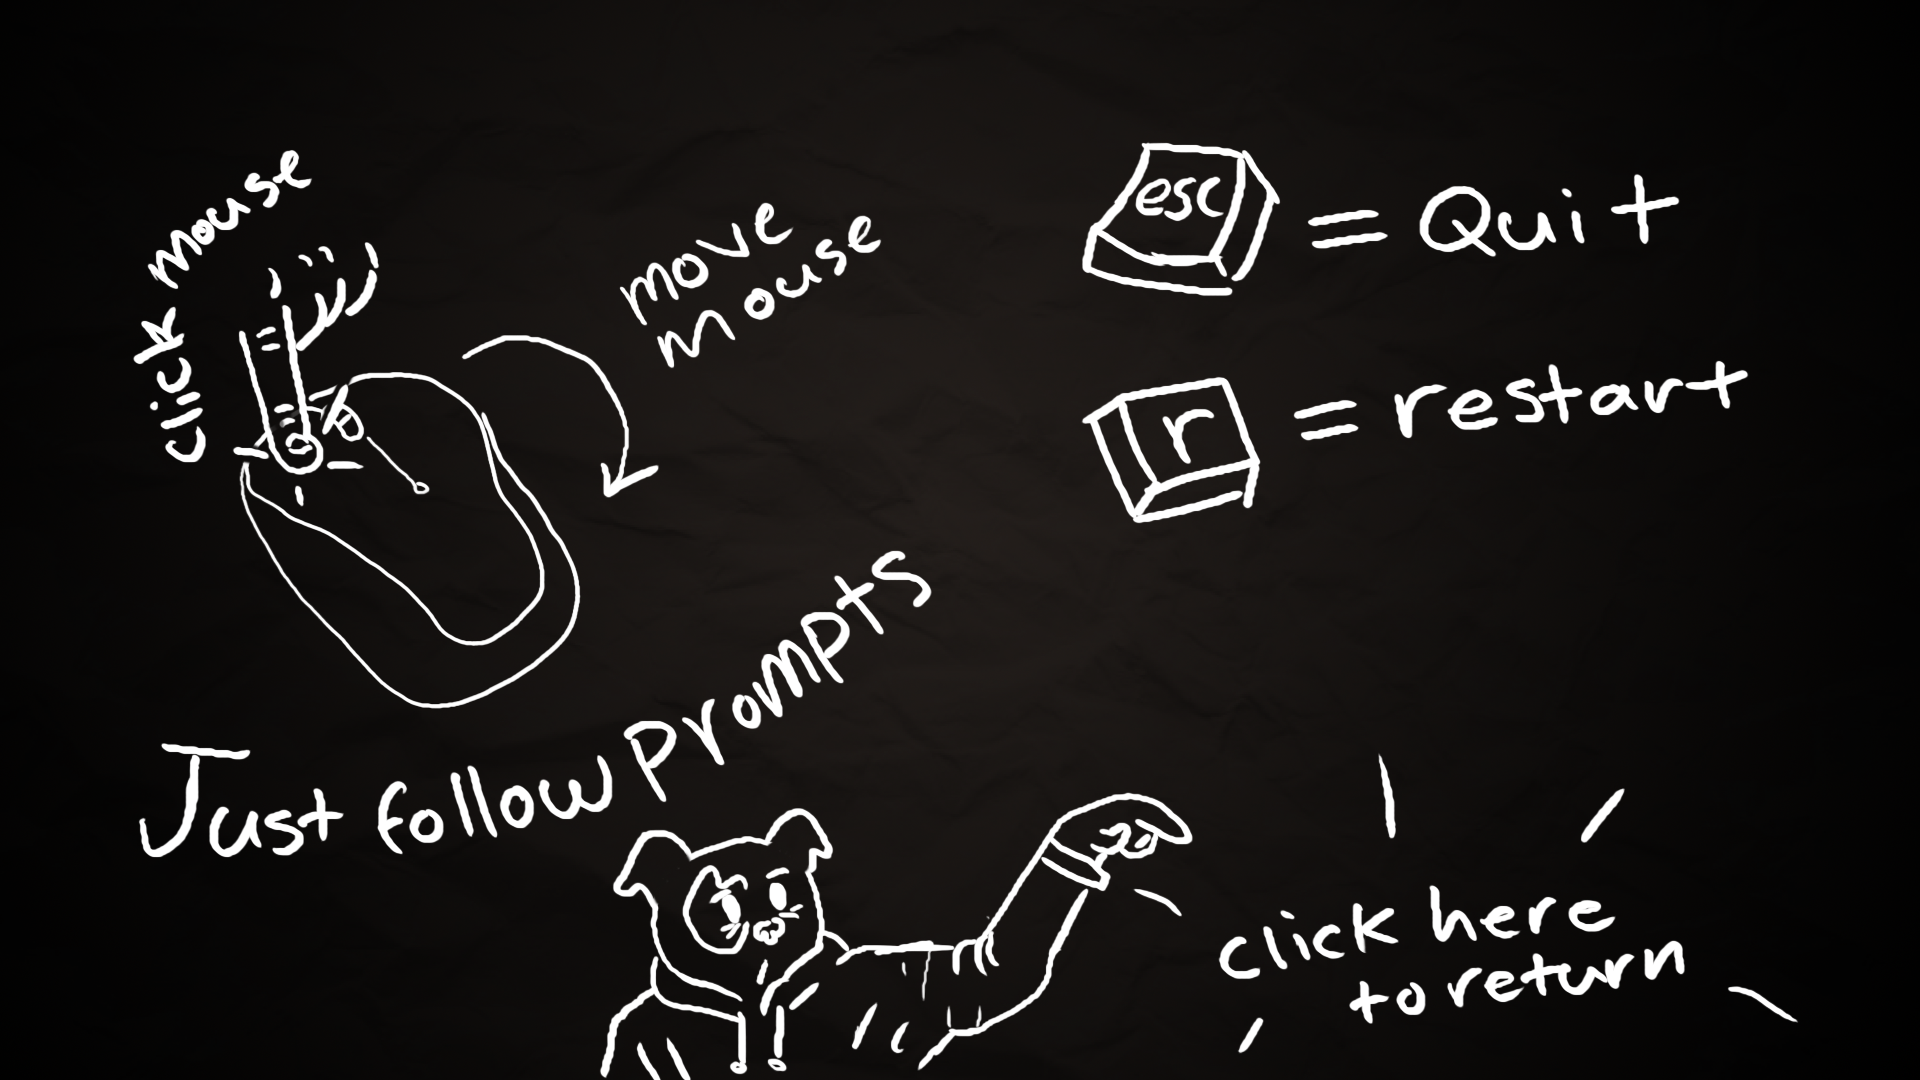 click mouse
move
mouse
esc = Quit
r = restart
Just follow Prompts
click here
to return